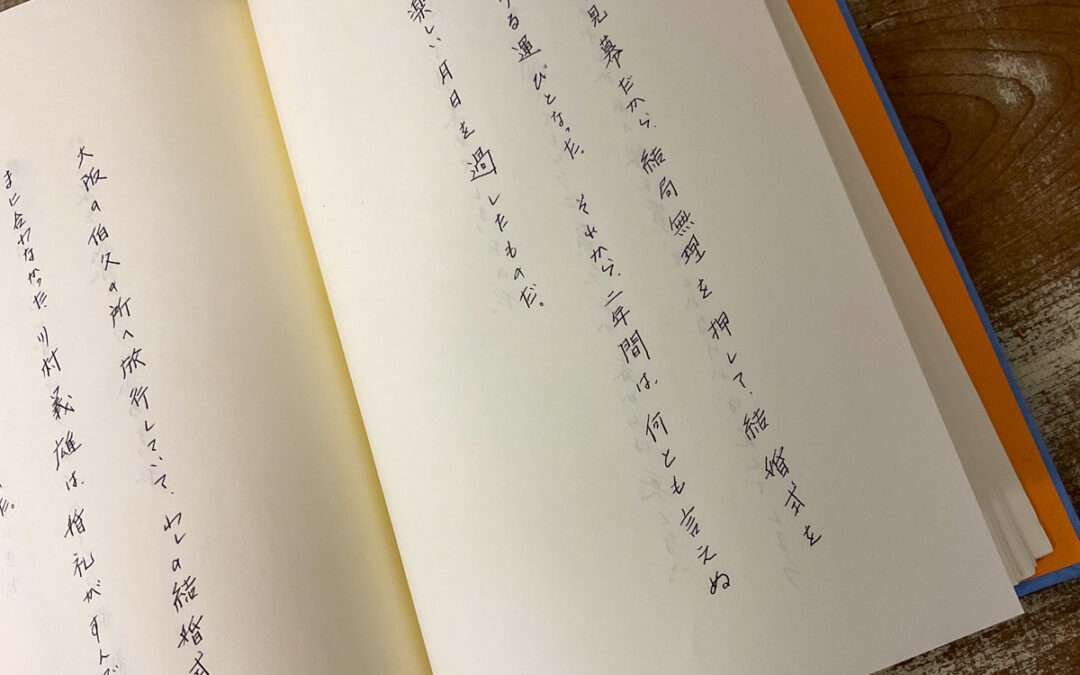 見幕だから、結局無理を押して、結婚式を
る運びとなった。それから、二年間は、何とも言えぬ
楽しい月日を過したものだ。
大阪の伯久の所へ放行していて、わしの結婚式
まに合わなかった、川村義雄は、婚礼がすんで
だ。